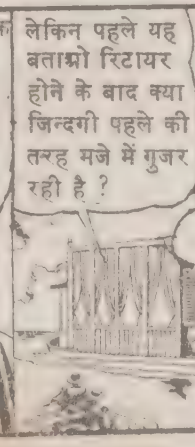 लेकिन पहले यह
बताओ रिटायर
होने के बाद क्या
जिन्दगी पहले की
तरह मजे में गुजर
रही है ?